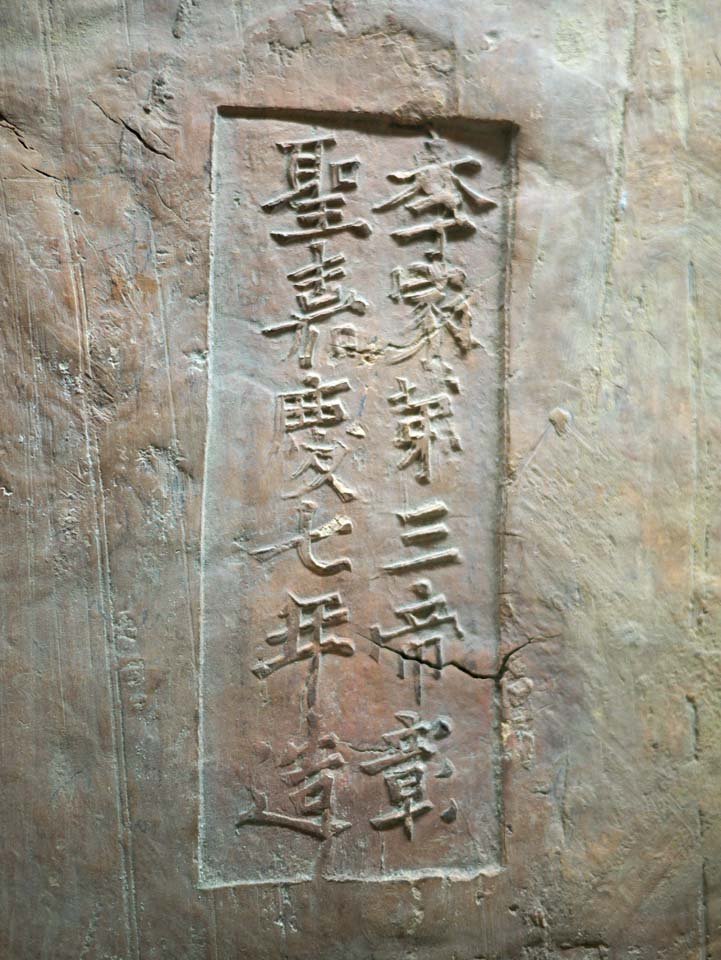 李家第三帝彰
聖嘉慶七年造